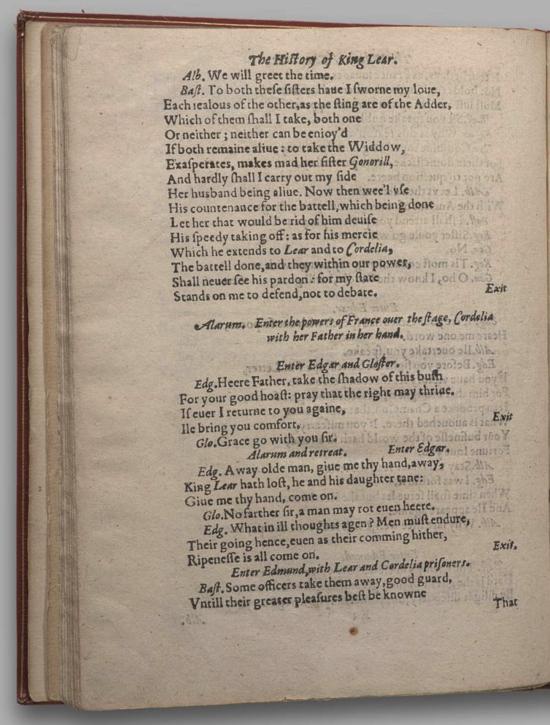 The Hiſtory of King Lear.
Alb. We will greet the time.
Baſt. To both theſe ſiſters haue I ſworne my loue,
Each iealous of the other, as the ſting are of the Adder,
Which of them ſhall I take, both one
Or neither ; neither can be enioy'd
If both remaine aliue : to take the Widdow,
Exaſperates, makes mad her ſiſter Gonorill,
And hardly ſhall I carry out my ſide
Her husband being aliue. Now then wee'l vſe
His countenance for the battell, which being done
Let her that would be rid of him deuiſe
His ſpeedy taking off : as for his mercie
Which he extends to Lear and to Cordelia,
The battell done, and they within our power,
Shall neuer ſee his pardon : for my ſtate
Stands on me to defend, not to debate. Exit
Alarum. Enter the powers of France ouer the ſtage, Cordelia
with her Father in her hand.
Enter Edgar and Gloſter.
Edg. Heere Father, take the ſhadow of this buſh
For your good hoaſt : pray that the right may thriue.
If euer I returne to you againe,
Ile bring you comfort. Exit
Glo. Grace go with you ſir.
Alarum and retreat. Enter Edgar.
Edg. Away olde man, giue me thy hand, away,
King Lear hath loſt, he and his daughter tane:
Giue me thy hand, come on.
Glo. No farther ſir, a man may rot euen heere.
Edg. What in ill thoughts agen ? Men muſt endure,
Their going hence, euen as their comming hither,
Ripeneſſe is all come on. Exit.
Enter Edmund, with Lear and Cordelia priſoners.
Baſt. Some officers take them away, good guard,
Vntill their greater pleaſures beſt be knowne
That